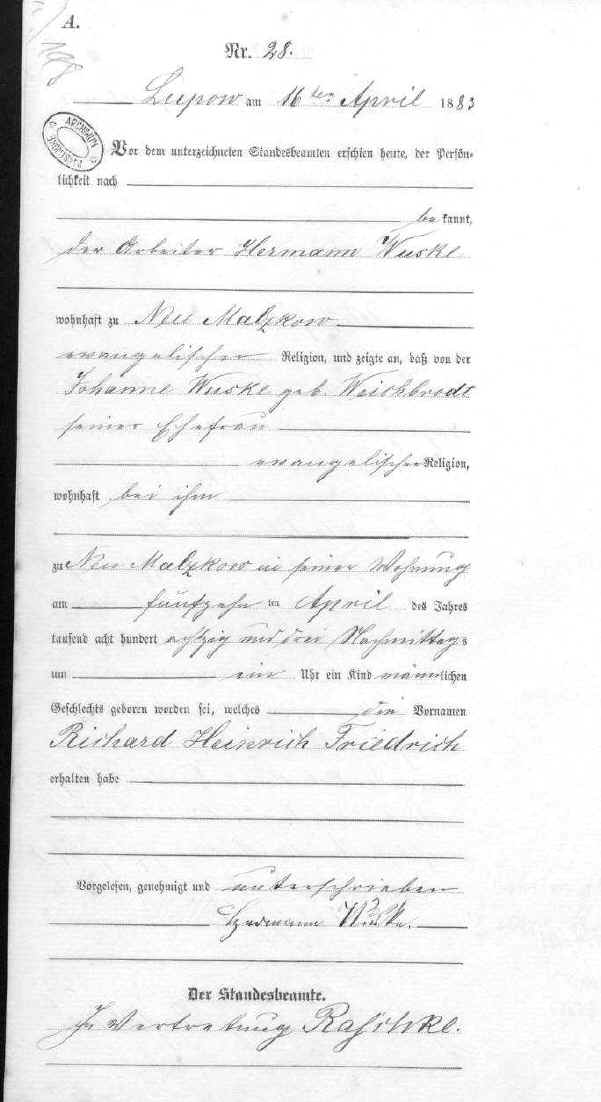 A.
Nr. 28.
Lupow am 16ten April 1883
ARCHIWUM
Vor dem unterzeichneten Standesbeamten erschien heute, der Persön-
lichkeit nach
be kannt,
der Arbeiter Hermann Wuske
wohnhaft zu Neu Malzkow
evangelischer Religion, und zeigte an, daß von der
Johanne Wuske geb. Weichbrodt
seiner Ehefrau
evangelischer Religion,
wohnhaft bei ihm
zu Neu Malzkow in seiner Wohnung
am fünfzehn ten April des Jahres
tausend acht hundert achtzig und drei Nachmittags
um ein Uhr ein Kind männlichen
Geschlechts geboren worden sei, welches die Vornamen
Richard Heinrich Friedrich
erhalten habe
Vorgelesen, genehmigt und unterschrieben
Hermann Wuske.
Der Standesbeamte.
In Vertretung Raschke.